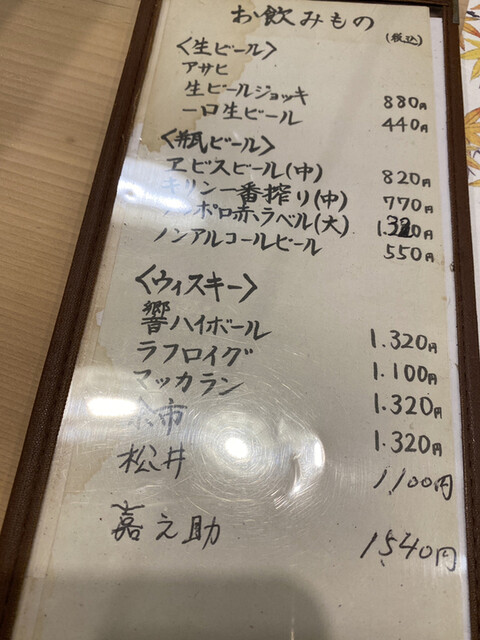 お飲みもの
(税込)
〈生ビール〉
アサヒ
生ビールジョッキ 880円
一口生ビール 440円
〈瓶ビール〉
ヱビスビール(中) 820円
キリン一番搾り(中) 770円
ッポロ赤ラベル(大) 1.320円
ノンアルコールビール 550円
〈ウィスキー〉
響ハイボール 1.320円
ラフロイグ 1.100円
マッカラン 1.320円
市 1.320円
松井 1,100円
嘉之助 1,540円